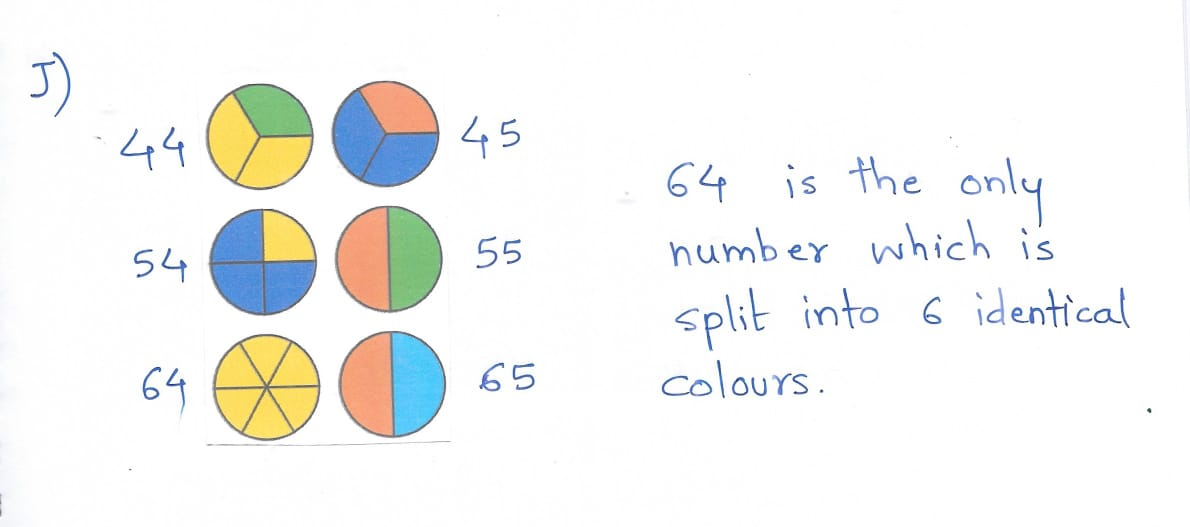 J)
44 45
54 55
64 65
64 is the only
number which is
split into 6 identical
colours.